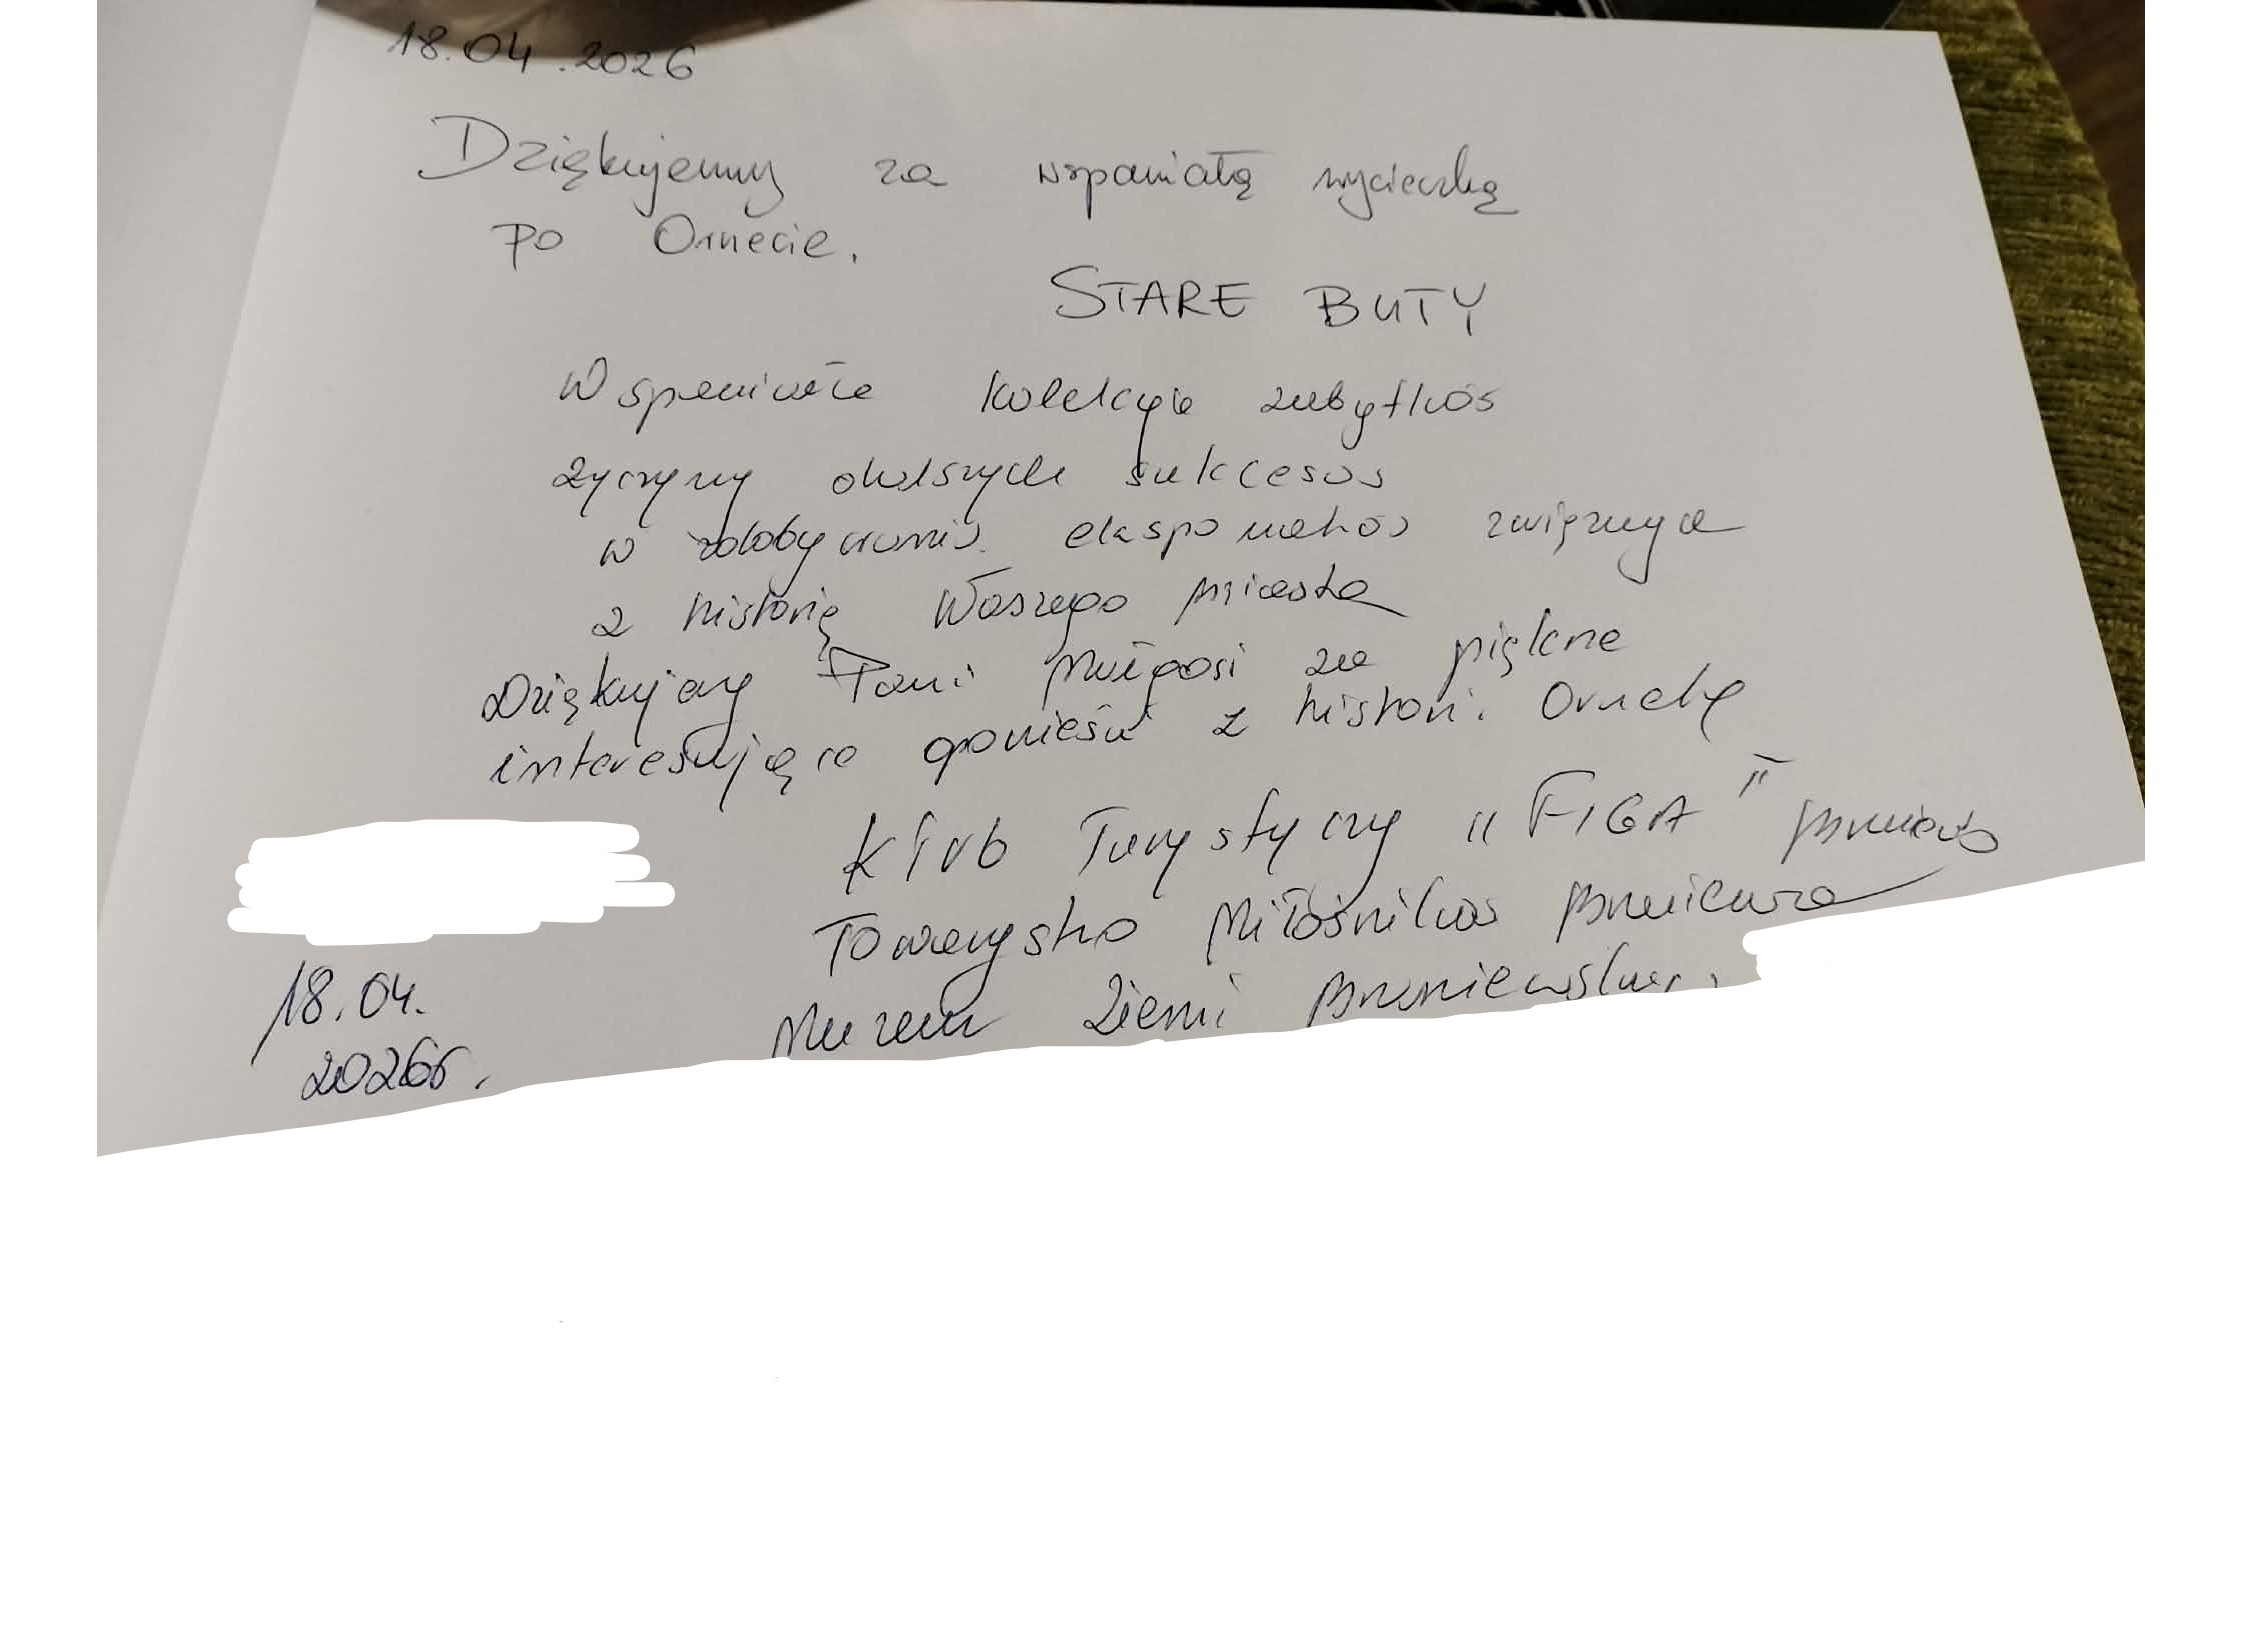 18.04.2026
Dziękujemy za wspaniałą wycieczkę
po Ornecie.
STARE BUTY
Wspaniała kolekcja zabytków
życzymy dalszych sukcesów
w zdobywaniu eksponatów związanych
z historią Waszego miasta
Dziękujemy Pani Małgosi za piękne
interesujące opowieści z historii Ornety
Klub Turystyczny "FIGA" Braniewo
Towarzystwo Miłośników Braniewa
Muzeum Ziemi Braniewskiej.
18.04.
2026r.